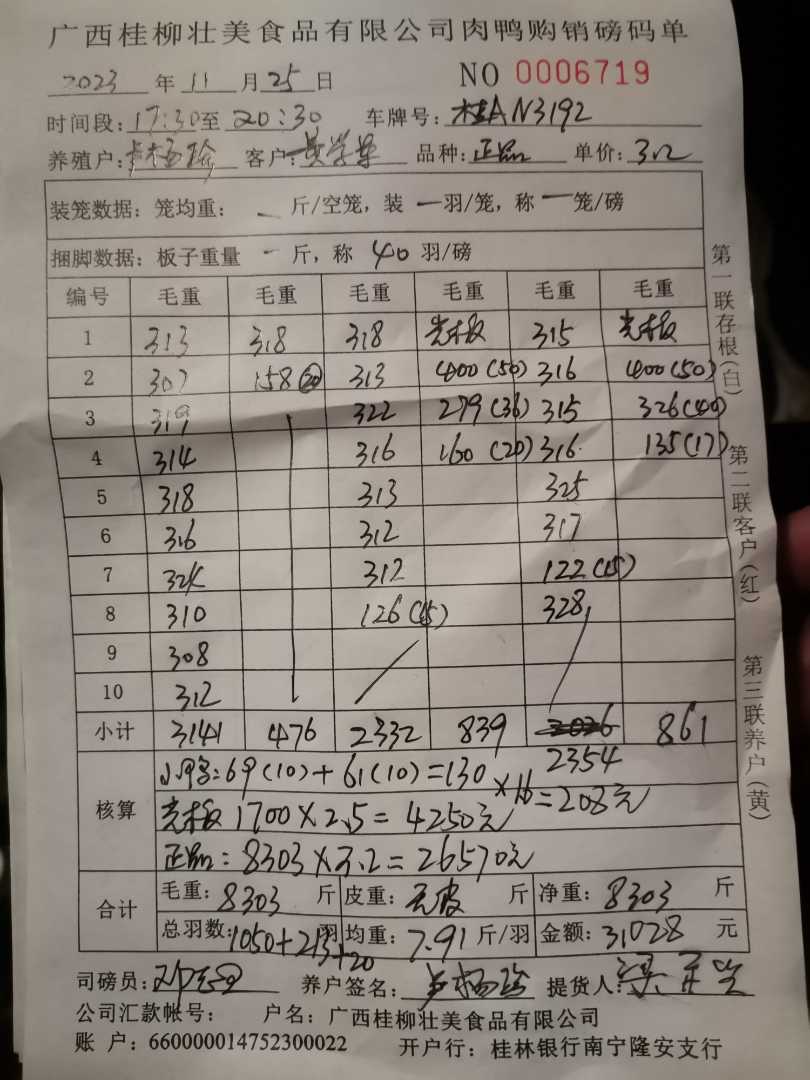 广西桂柳壮美食品有限公司肉鸭购销磅码单
2023 年 11 月 25 日 NO 0006719
时间段: 17:30 至 20:30 车牌号: 桂AN3192
养殖户: 客户: 品种: 正品 单价: 3.2
装笼数据: 笼均重: — 斤/空笼, 装 — 羽/笼, 称 — 笼/磅
捆脚数据: 板子重量 - 斤, 称 40 羽/磅
编号 毛重 毛重 毛重 毛重 毛重 毛重
1 313 318 318 光板 315 光板
2 307 158(20) 313 400(50) 316 400(50)
3 319 322 279(36) 315 326(40)
4 314 316 160(20) 316 135(17)
5 318 313 325
6 316 312 317
7 324 312 122(15)
8 310 126(15) 328
9 308
10 312
小计 3141 476 2332 839 2026 861
2354
核算
小鸭:69(10)+61(10)=130×16=208元
光板 1700×2.5=4250元
正品:8303×3.2=26570元
合计
毛重: 8303 斤 皮重: 无皮 斤 净重: 8303 斤
总羽数: 1050+213+20 羽 均重: 7.91 斤/羽 金额: 31028 元
司磅员: 养户签名: 提货人:
公司汇款帐号: 户名: 广西桂柳壮美食品有限公司
账 户: 660000014752300022 开户行: 桂林银行南宁隆安支行
第一联存根(白)
第二联客户(红)
第三联养户(黄)